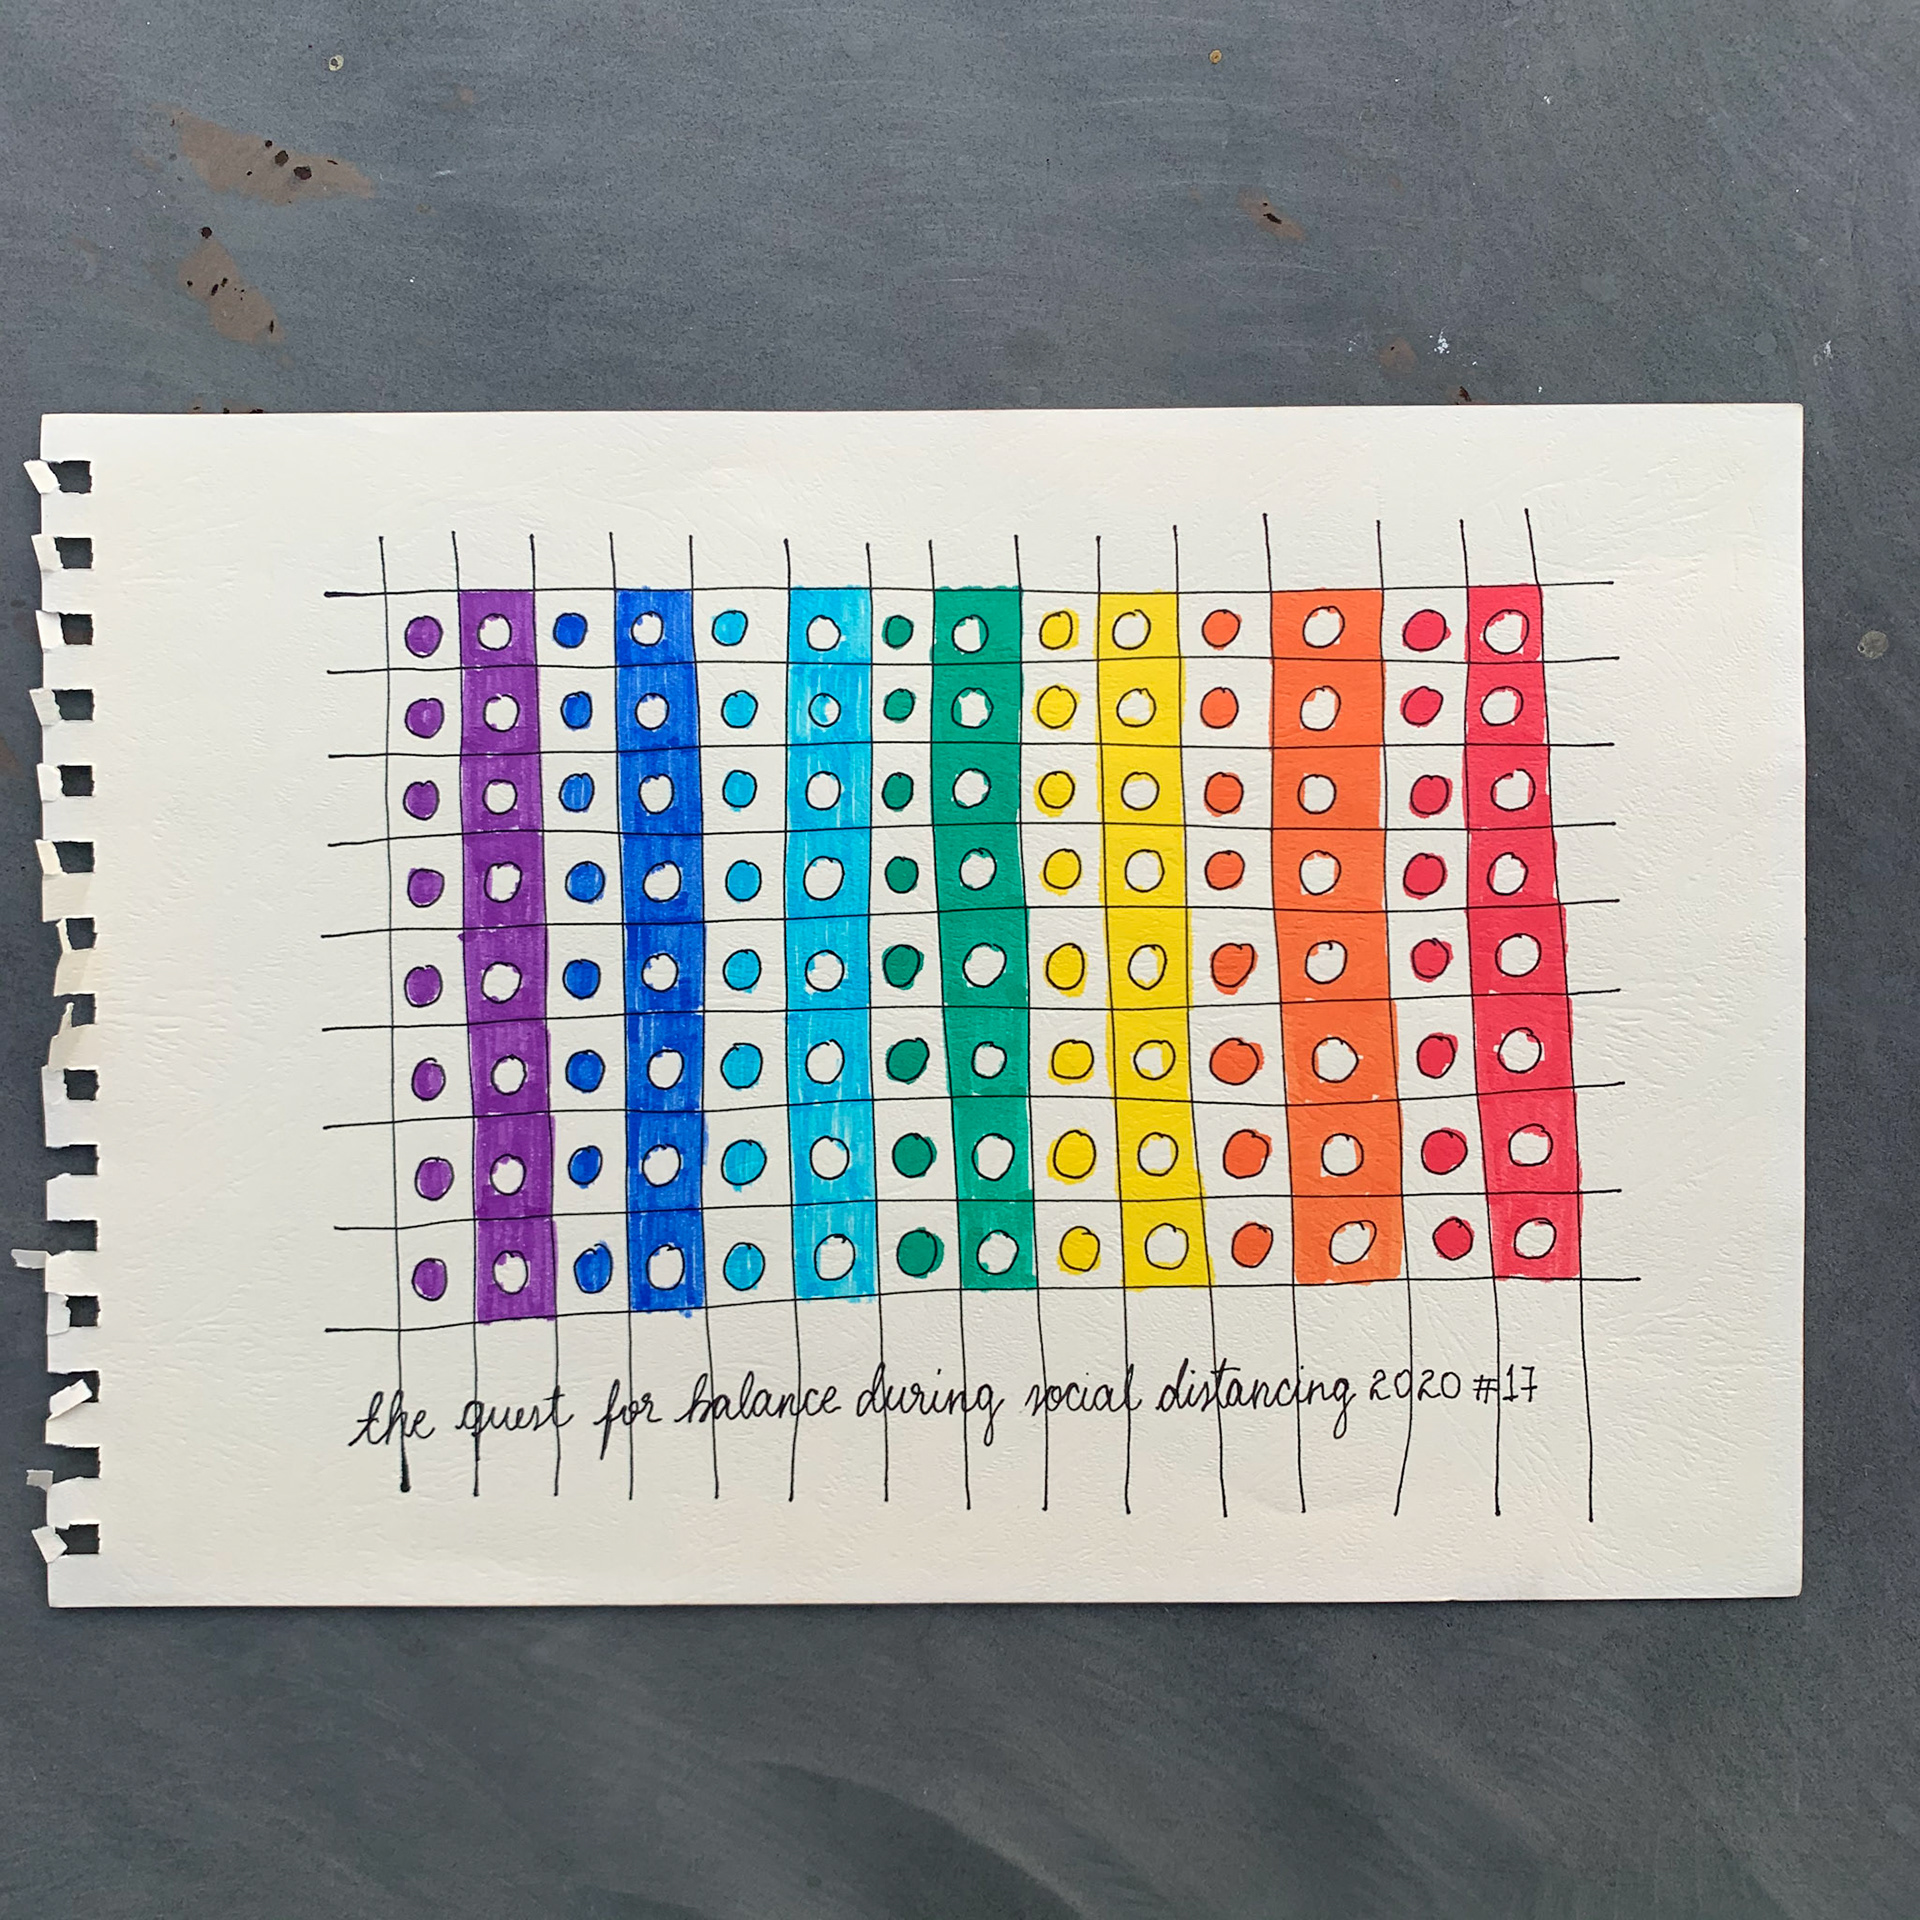 the quest for balance during social distancing 2020 #17